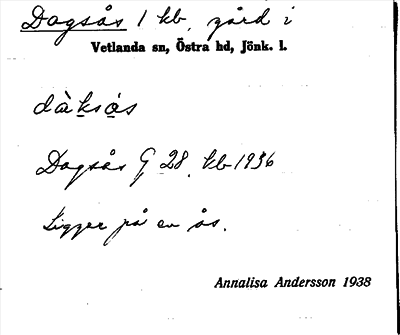 Dagsås 1 kb, gård i
Vetlanda sn, Östra hd, Jönk. l.
dàksås
Dagsås G 28. kb 1936
Ligger på en ås.
Annalisa Andersson 1938